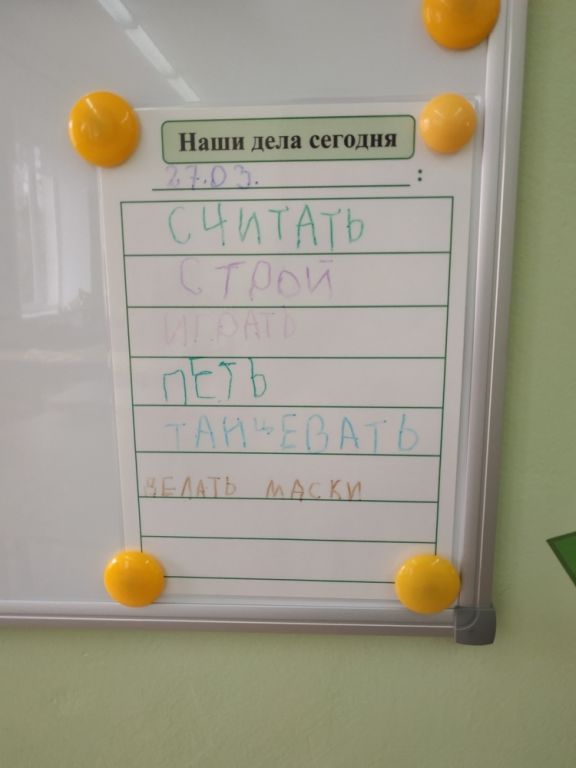 Наши дела сегодня
27.03. :
СЧИТАТЬ
СТРОЙ
ИГРАТЬ
ПЕТЬ
ТАНЦЕВАТЬ
ДЕЛАТЬ МАСКИ